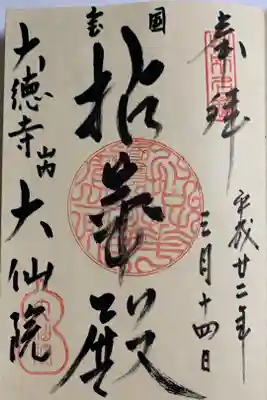 奉拝
平成廿二年
三月十四日
国宝
拈華殿
大徳寺山内大仙院